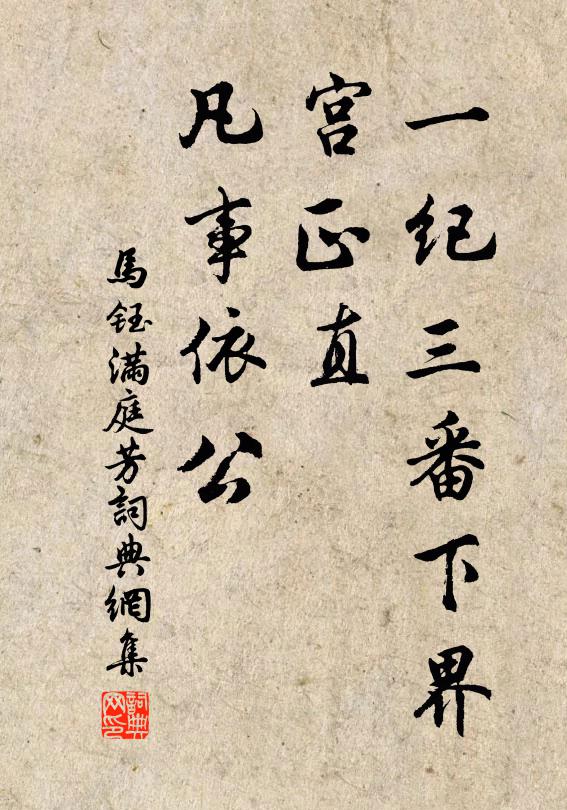 一紀三番下界
宫正直
凡事依公
馬鈺滿庭芳詞典網集
詞典網印